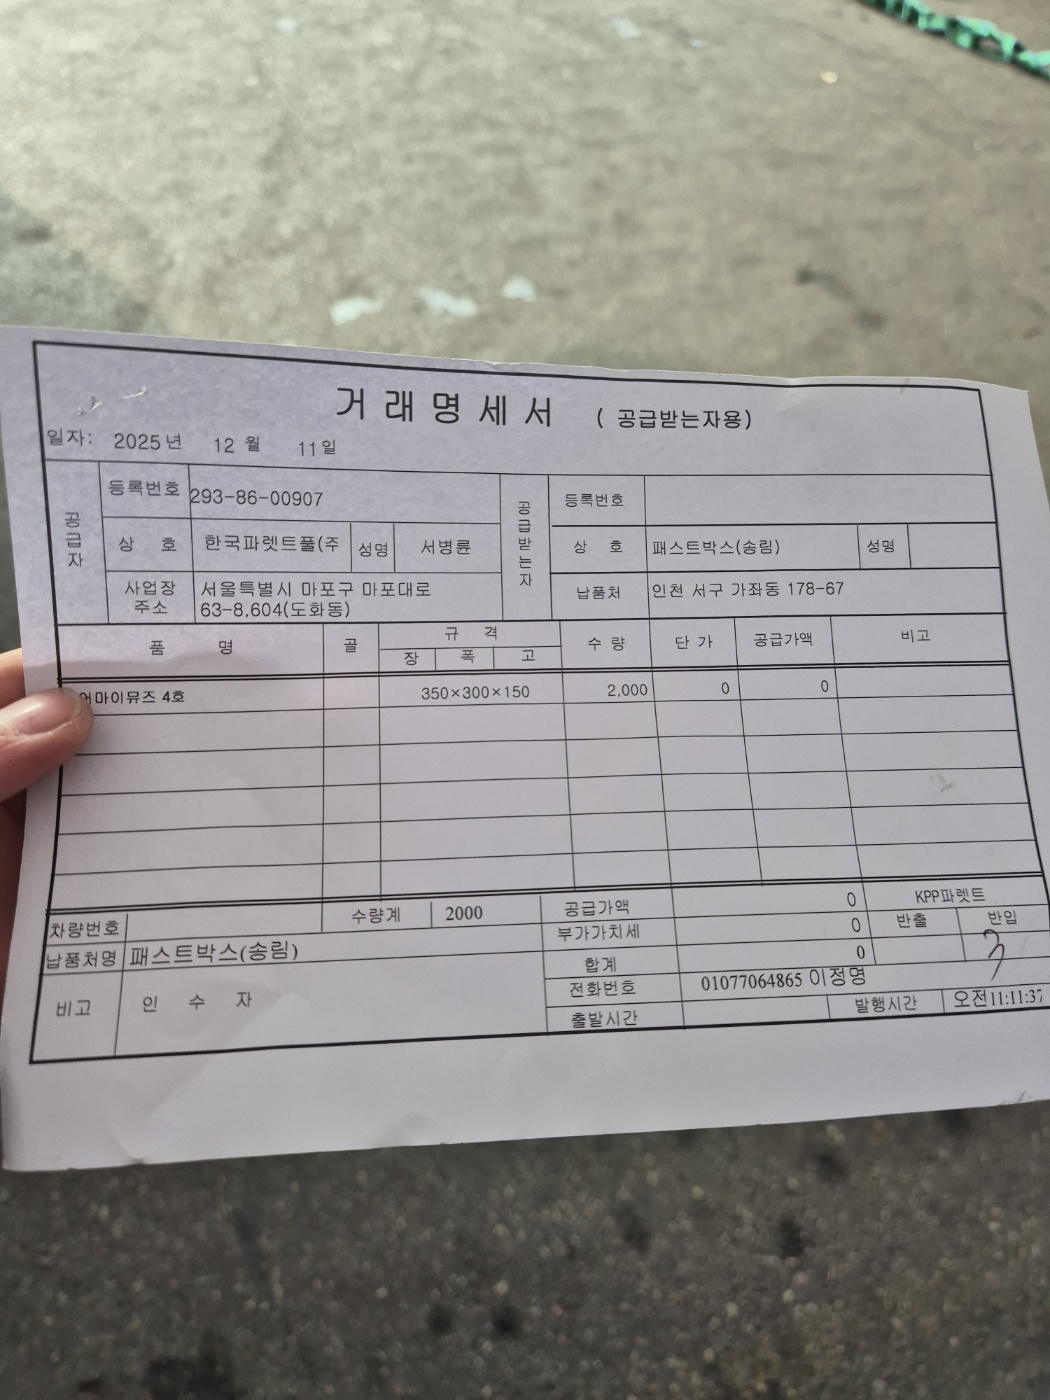 거래명세서 ( 공급받는자용)
일자: 2025년 12 월 11일
공급자 등록번호 293-86-00907 공급받는자 등록번호
상 호 한국파렛트풀(주 성명 서병륜 상 호 패스트박스(송림) 성명
사업장 주소 서울특별시 마포구 마포대로 납품처 인천 서구 가좌동 178-67
63-8,604(도화동)
품 명 골 규 격 수 량 단 가 공급가액 비고
장 폭 고
어마이뮤즈 4호 350×300×150 2,000 0 0
차량번호 수량계 2000 공급가액 0 KPP파렛트
납품처명 패스트박스(송림) 부가가치세 0 반출 반입
합계 0 3
비고 인 수 자 전화번호 01077064865 이정명
출발시간 발행시간 오전11:11:37